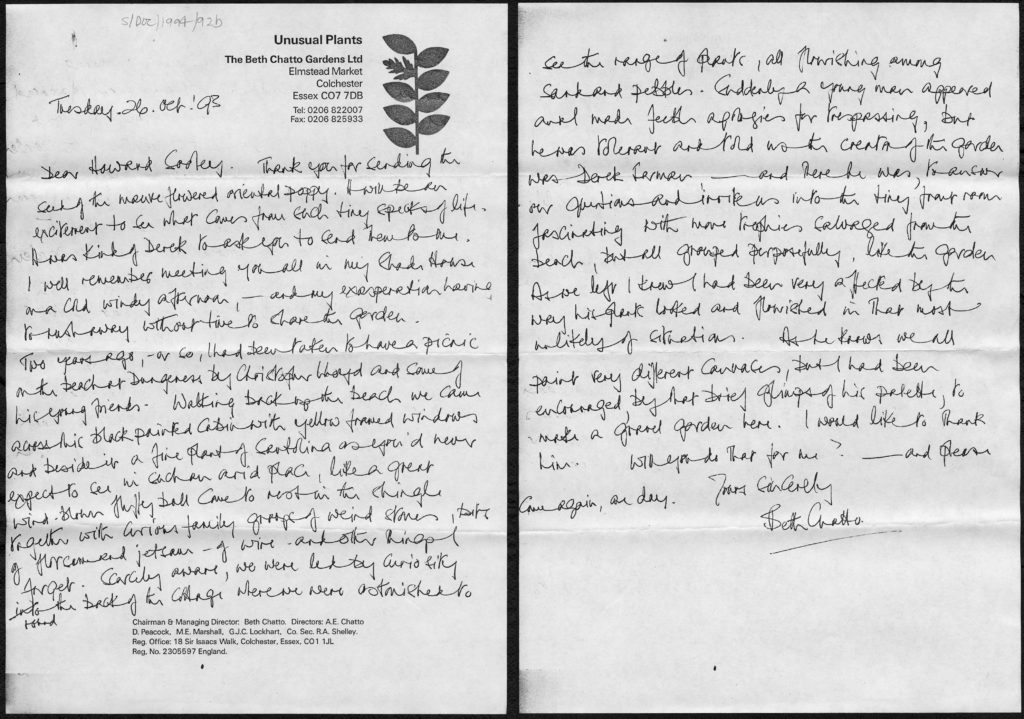 S/Doc/1994/92b
Unusual Plants
The Beth Chatto Gardens Ltd
Elmstead Market
Colchester
Essex CO7 7DB
Tel: 0206 822007
Fax: 0206 825933
Tuesday. 26. Oct. '93
Dear Howard Sooley. Thank you for sending the
seed of the mauve flowered oriental poppy. It will be an
excitement to see what comes from such tiny specks of life.
It was kind of Derek to ask you to send them to me.
I well remember meeting you all in my Shade House
on a cold windy afternoon, — and my exasperation having
to rush away without time to share the garden.
Two years ago, - or so, I had been taken to have a picnic
on the beach at Dungeness by Christopher Lloyd and some of
his young friends. Walking back up the beach we came
across this black painted cabin with yellow framed windows
and beside it a fine plant of Santolina as you'd never
expect to see in such an arid place, like a great
wind-blown fluffy ball come to rest in the shingle
together with curious family groups of weird stones, bits
of flotsam and jetsam - of wire - and other things I
forget. Scarcily aware, we were led by curiosity
into the back of the cottage where we were astonished to
round
Chairman & Managing Director: Beth Chatto. Directors: A.E. Chatto
D. Peacock, M.E. Marshall, G.J.C. Lockhart, Co. Sec. R.A. Shelley.
Reg. Office: 18 Sir Isaacs Walk, Colchester, Essex. CO1 1JL
Reg. No. 2305597 England.
see the range of plants, all flourishing among
sand and pebbles. Suddenly a young man appeared
and I made feeble apologies for trespassing, but
he was tolerant and told us the creator of the garden
was Derek Jarman — and there he was, to answer
our questions and invite us into the tiny front room
fascinating with more trophies salvaged from the
beach, but all grouped purposefully, like the garden
As we left I knew I had been very affected by the
way his plants looked and flourished in that most
unlikely of situations. As he knows we all
paint very different canvases, but I had been
encouraged by that brief glimpse of his palette, to
make a gravel garden here. I would like to thank
him. Will you do that for me? — and please
come again, one day. Yours Sincerely
Beth Chatto.